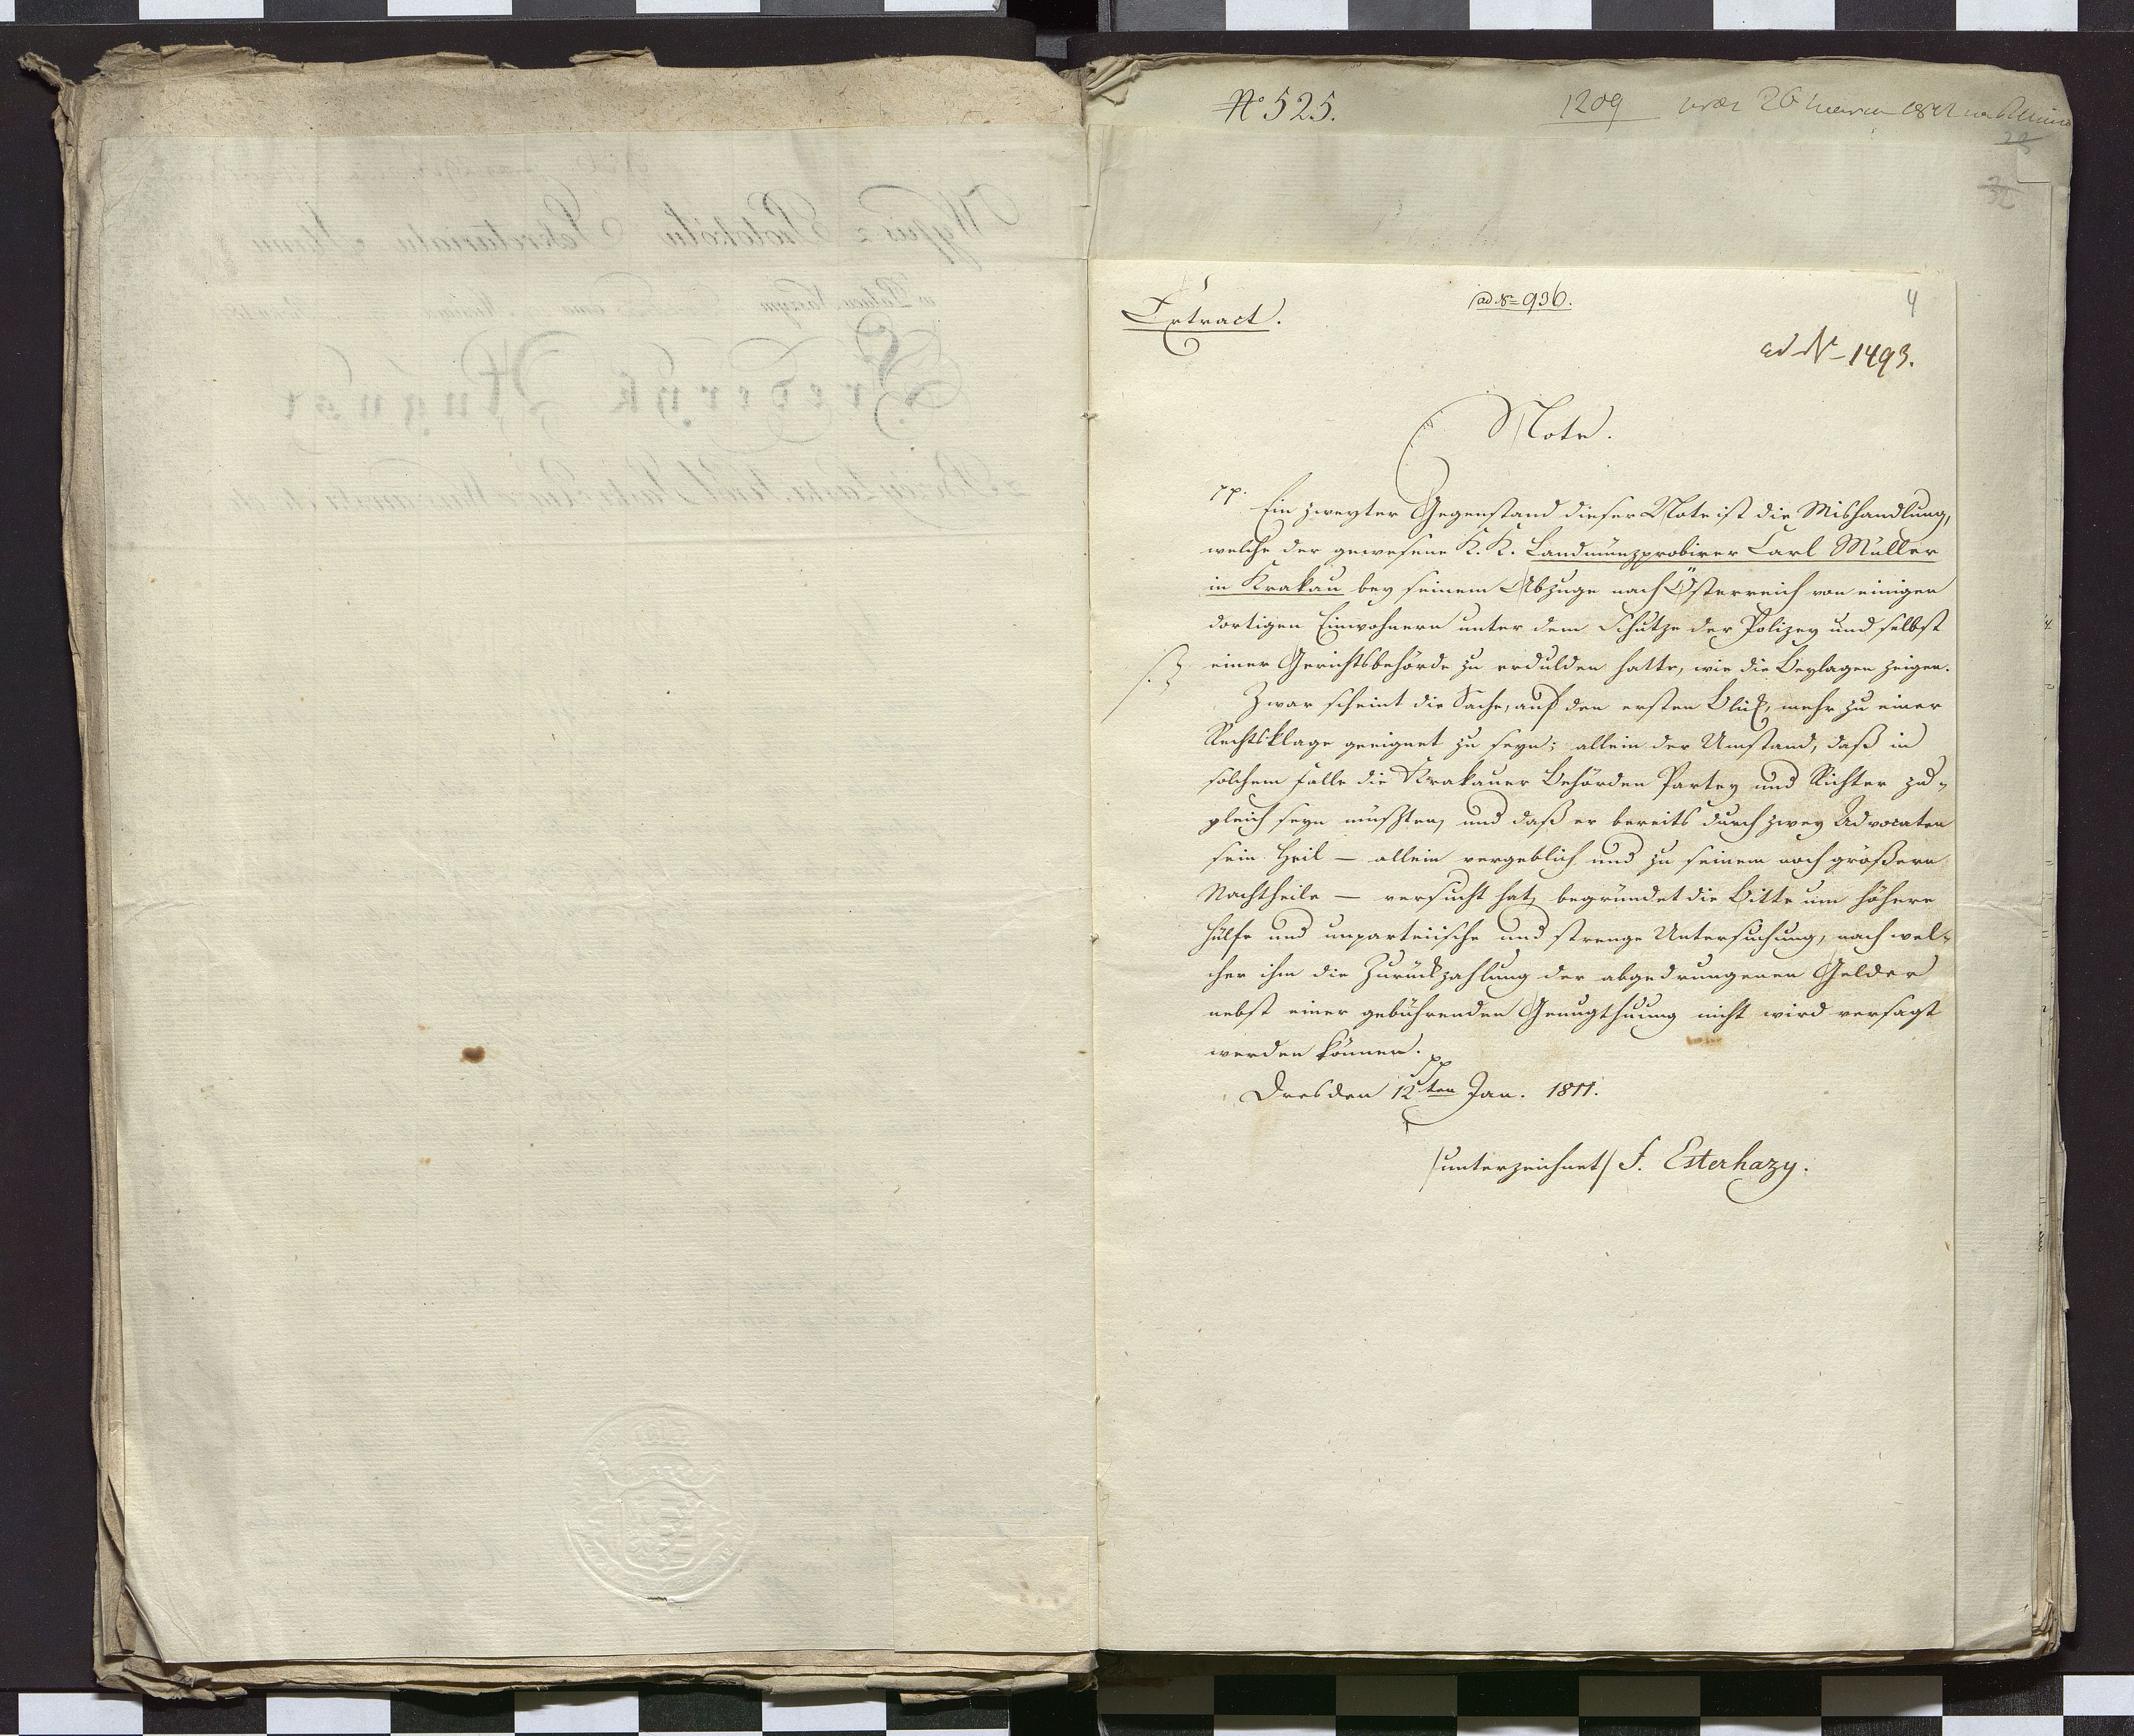 No 525.
1209
32
Extract.
ad No 936.
4
ad No 1493.
Note.
pp. Ein zweyter Gegenstand dieser Note ist die Mishandlung,
welche der gewesene K. K. Landmünzprobirer Carl Müller
in Krakau bey seinem Abzuge nach Österreich von einigen
dortigen Einwohnern unter dem Schutze der Polizey und selbst
einer Gerichtsbehörde zu erdulden hatte, wie die Beylagen zeigen.
Zwar scheint die Sache, auf den ersten Blick, mehr zu einer
Rechtsklage geeignet zu seyn; allein der Umstand, daß in
solchem Falle die Krakauer Behörden Partey und Richter zu-
gleich seyn müßten, und daß er bereits durch zwey Advocaten
sein Heil — allein vergeblich und zu seinem noch größern
Nachtheile — versucht hat, begründet die Bitte um höhere
Hülfe und unparteiische und strenge Untersuchung, nach wel-
cher ihm die Zurückzahlung der abgedrungenen Gelder
nebst einer gebührenden Genugthuung nicht wird versagt
werden können. pp
Dresden 12ten Jan. 1811.
/unterzeichnet/ F. Esterhazy.
Wypis z Protokołu Sekretariatu Stanu
Fryderyk August
z Bożey Łaski Król Saski Xiąże Warszawski &c. &c.